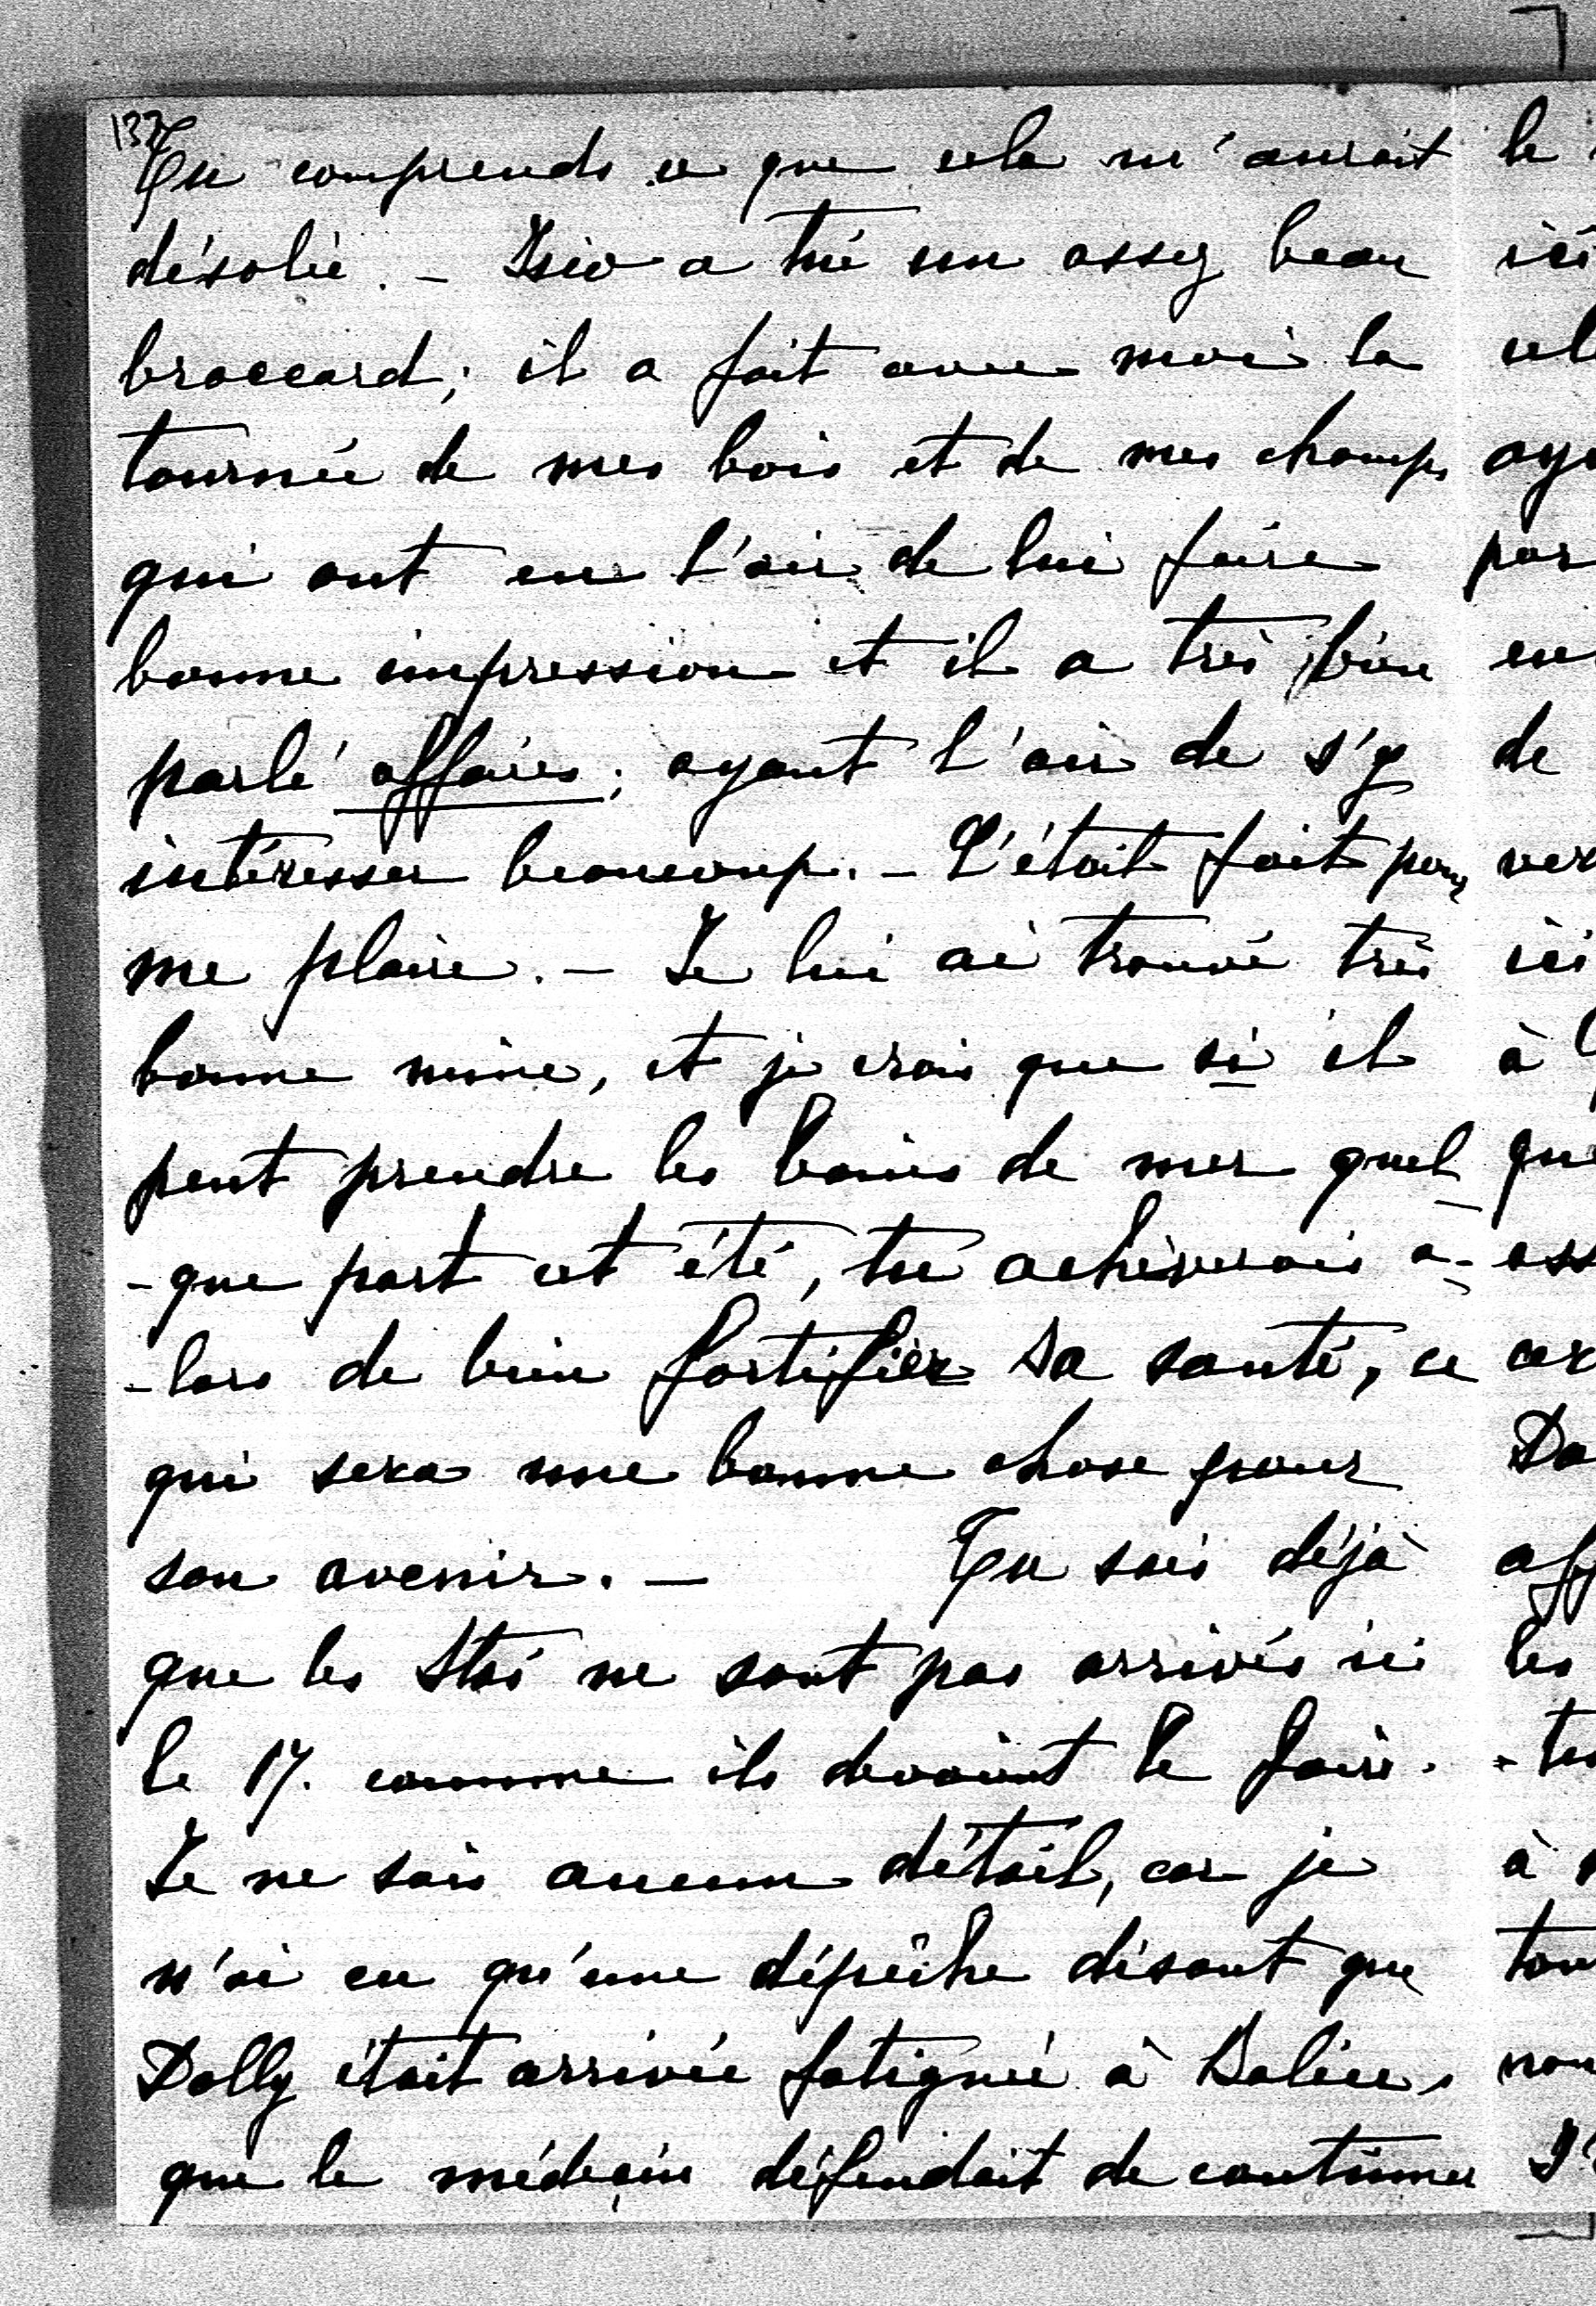 132
Tu comprends ce que cela m'aurait
désolée. - Isio a tué un assez beau
broccard; il a fait avec moi la
tournée de mes bois et de mes champs
qui ont eu l'air de lui faire
bonne impression et il a très bien
parlé affaires; ayant l'air de s'y
intéresser beaucoup. - C'était fait pour
me plaire. - Je lui ai trouvé très
bonne mine, et je crois que si il
peut prendre les bains de mer quel-
-que part cet été, tu achèverais a-
-lors de bien fortifier sa santé, ce
qui sera une bonne chose pour
son avenir. - Tu sais déjà
que les Stas ne sont pas arrivés ici
le 17. comme ils devaient le faire.
Je ne sais aucun détail, car je
n'ai eu qu'une dépêche disant que
Dolly était arrivée fatiguée à
que le médecin défendait de continuer